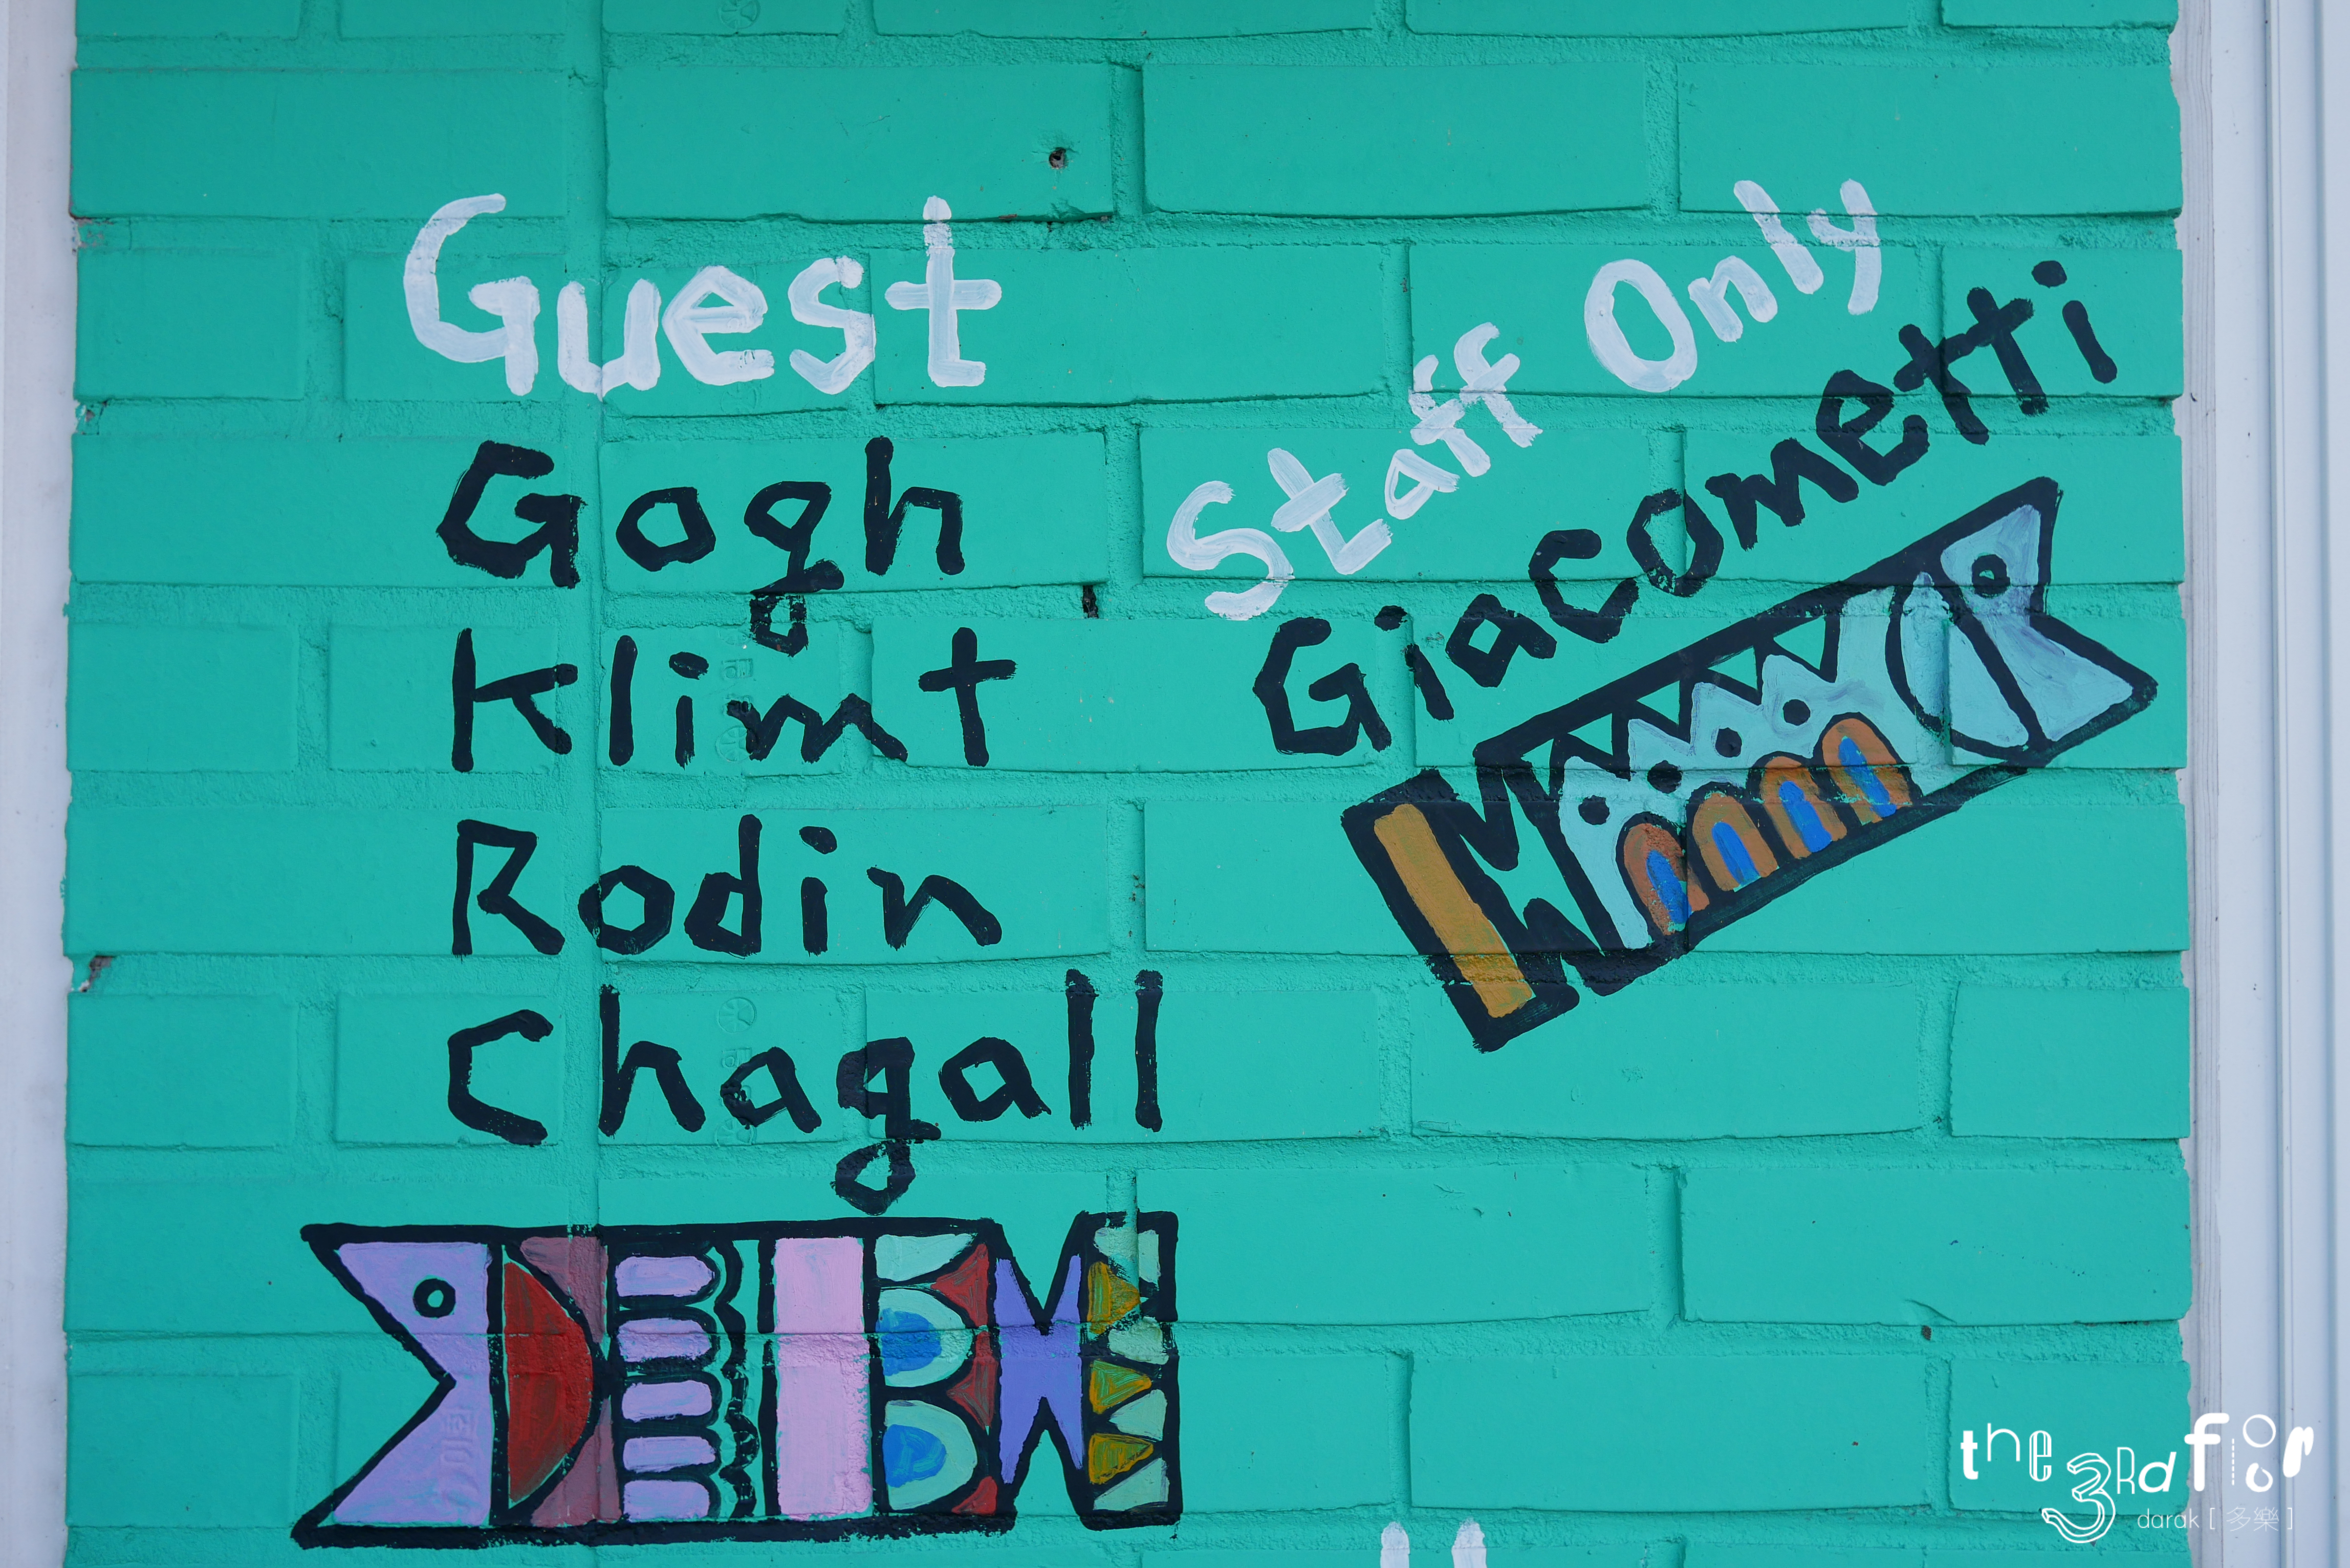 Guest
Gogh
Klimt
Rodin
Chagall
Staff Only
Giacometti
the 3Rd floor
darak [ 多樂 ]